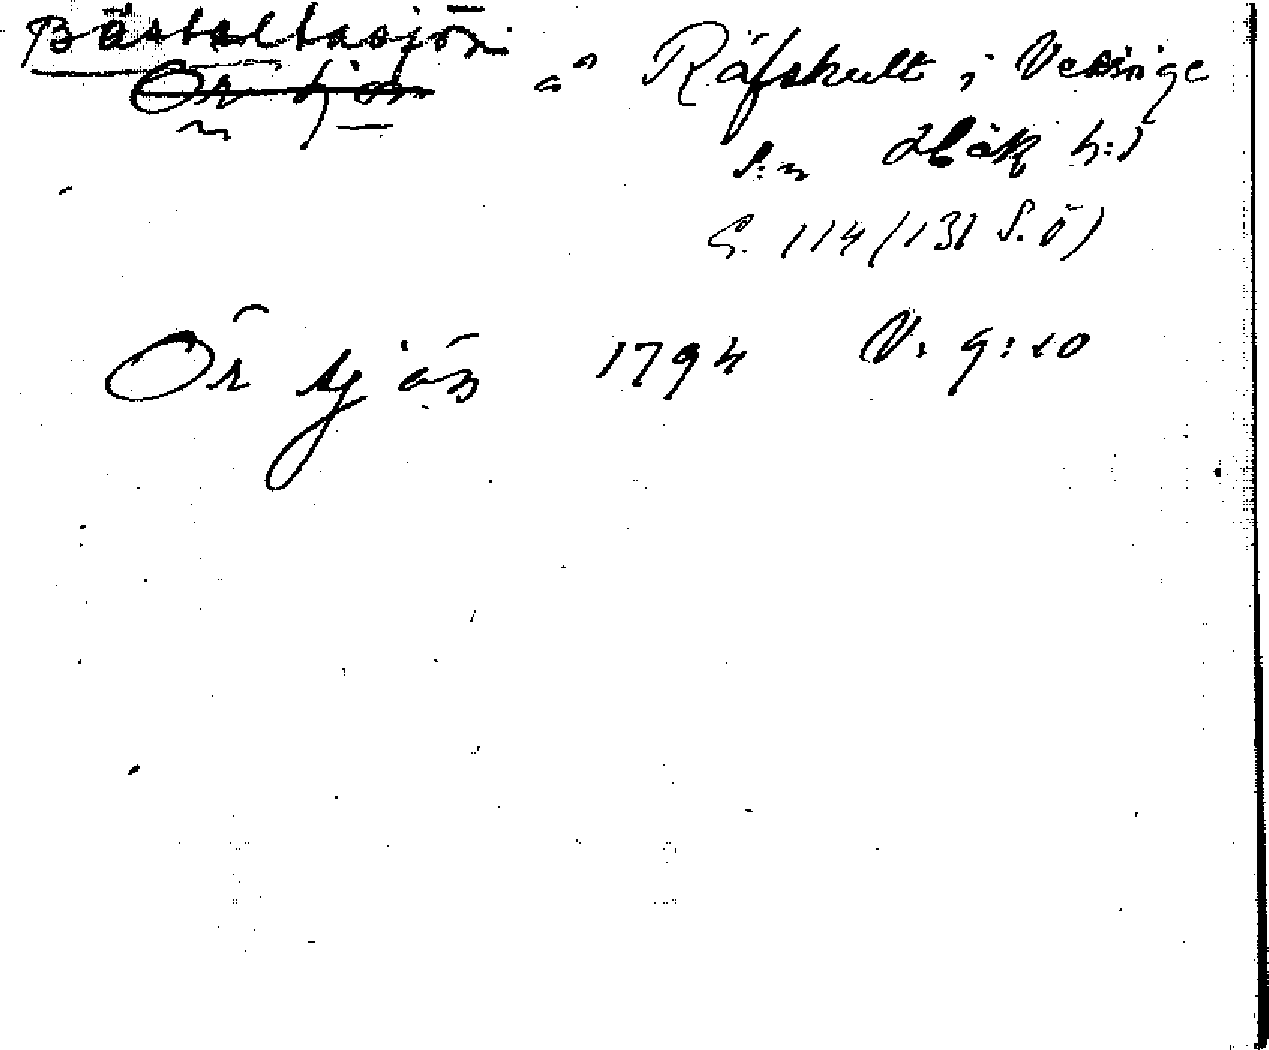 Bästaltasjön
Örsjön å Räfskult i Vessige
s:n Håk h:d
S. 114 (131 S. Ö)
Örsjön 1794 V. 9:10